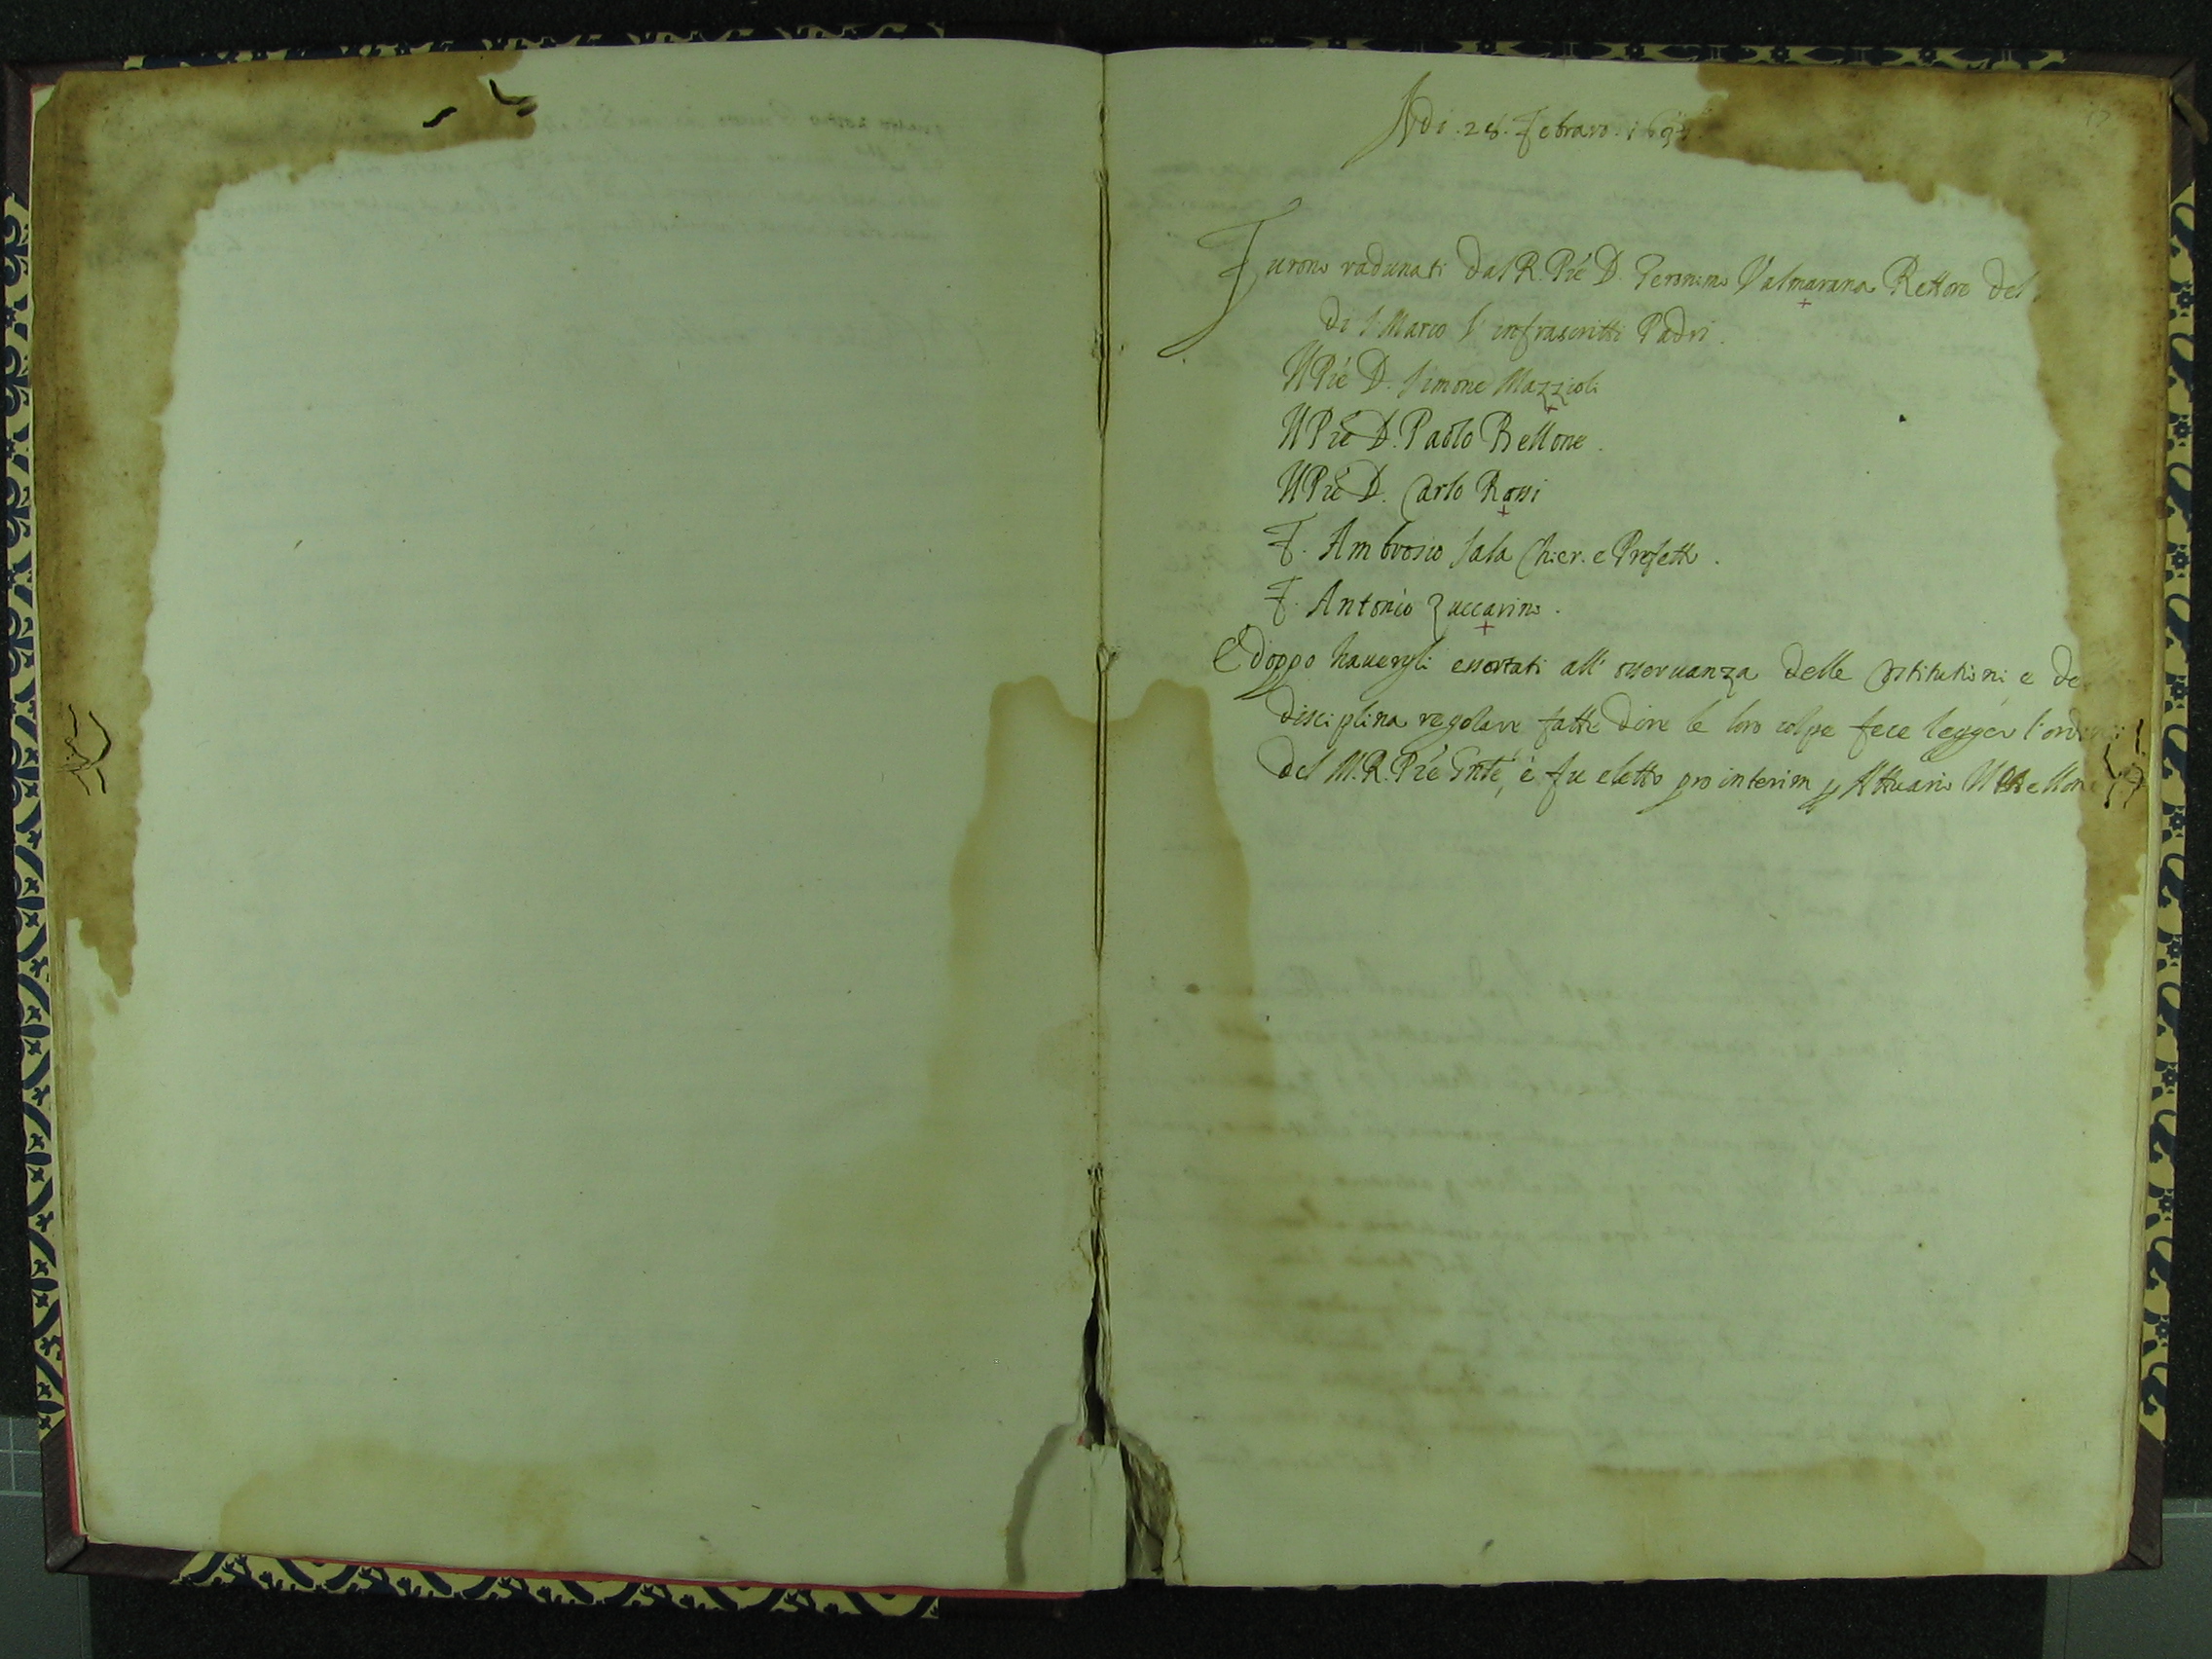 Adi .28. Febraro. 169
Furono radunati dal R. Prē D. Geronimo Valmarana Rettore del
di S Marco l' infrascritti Padri.
Il Prē D. Simone Mazzioli
Il Prē D. Paolo Bellone.
Il Prē D. Carlo Rossi
F. Ambrosio Sala Chier. e Profeßo.
F. Antonio Zuccarino.
E doppo havergli essortati all' osservanza delle Costitutioni e de
disciplina regolare fatte dire le loro colpe fece legger l'ordini
del M.R. Prē Gnlē, è fu eletto pro interim p Attuario Il Bellone